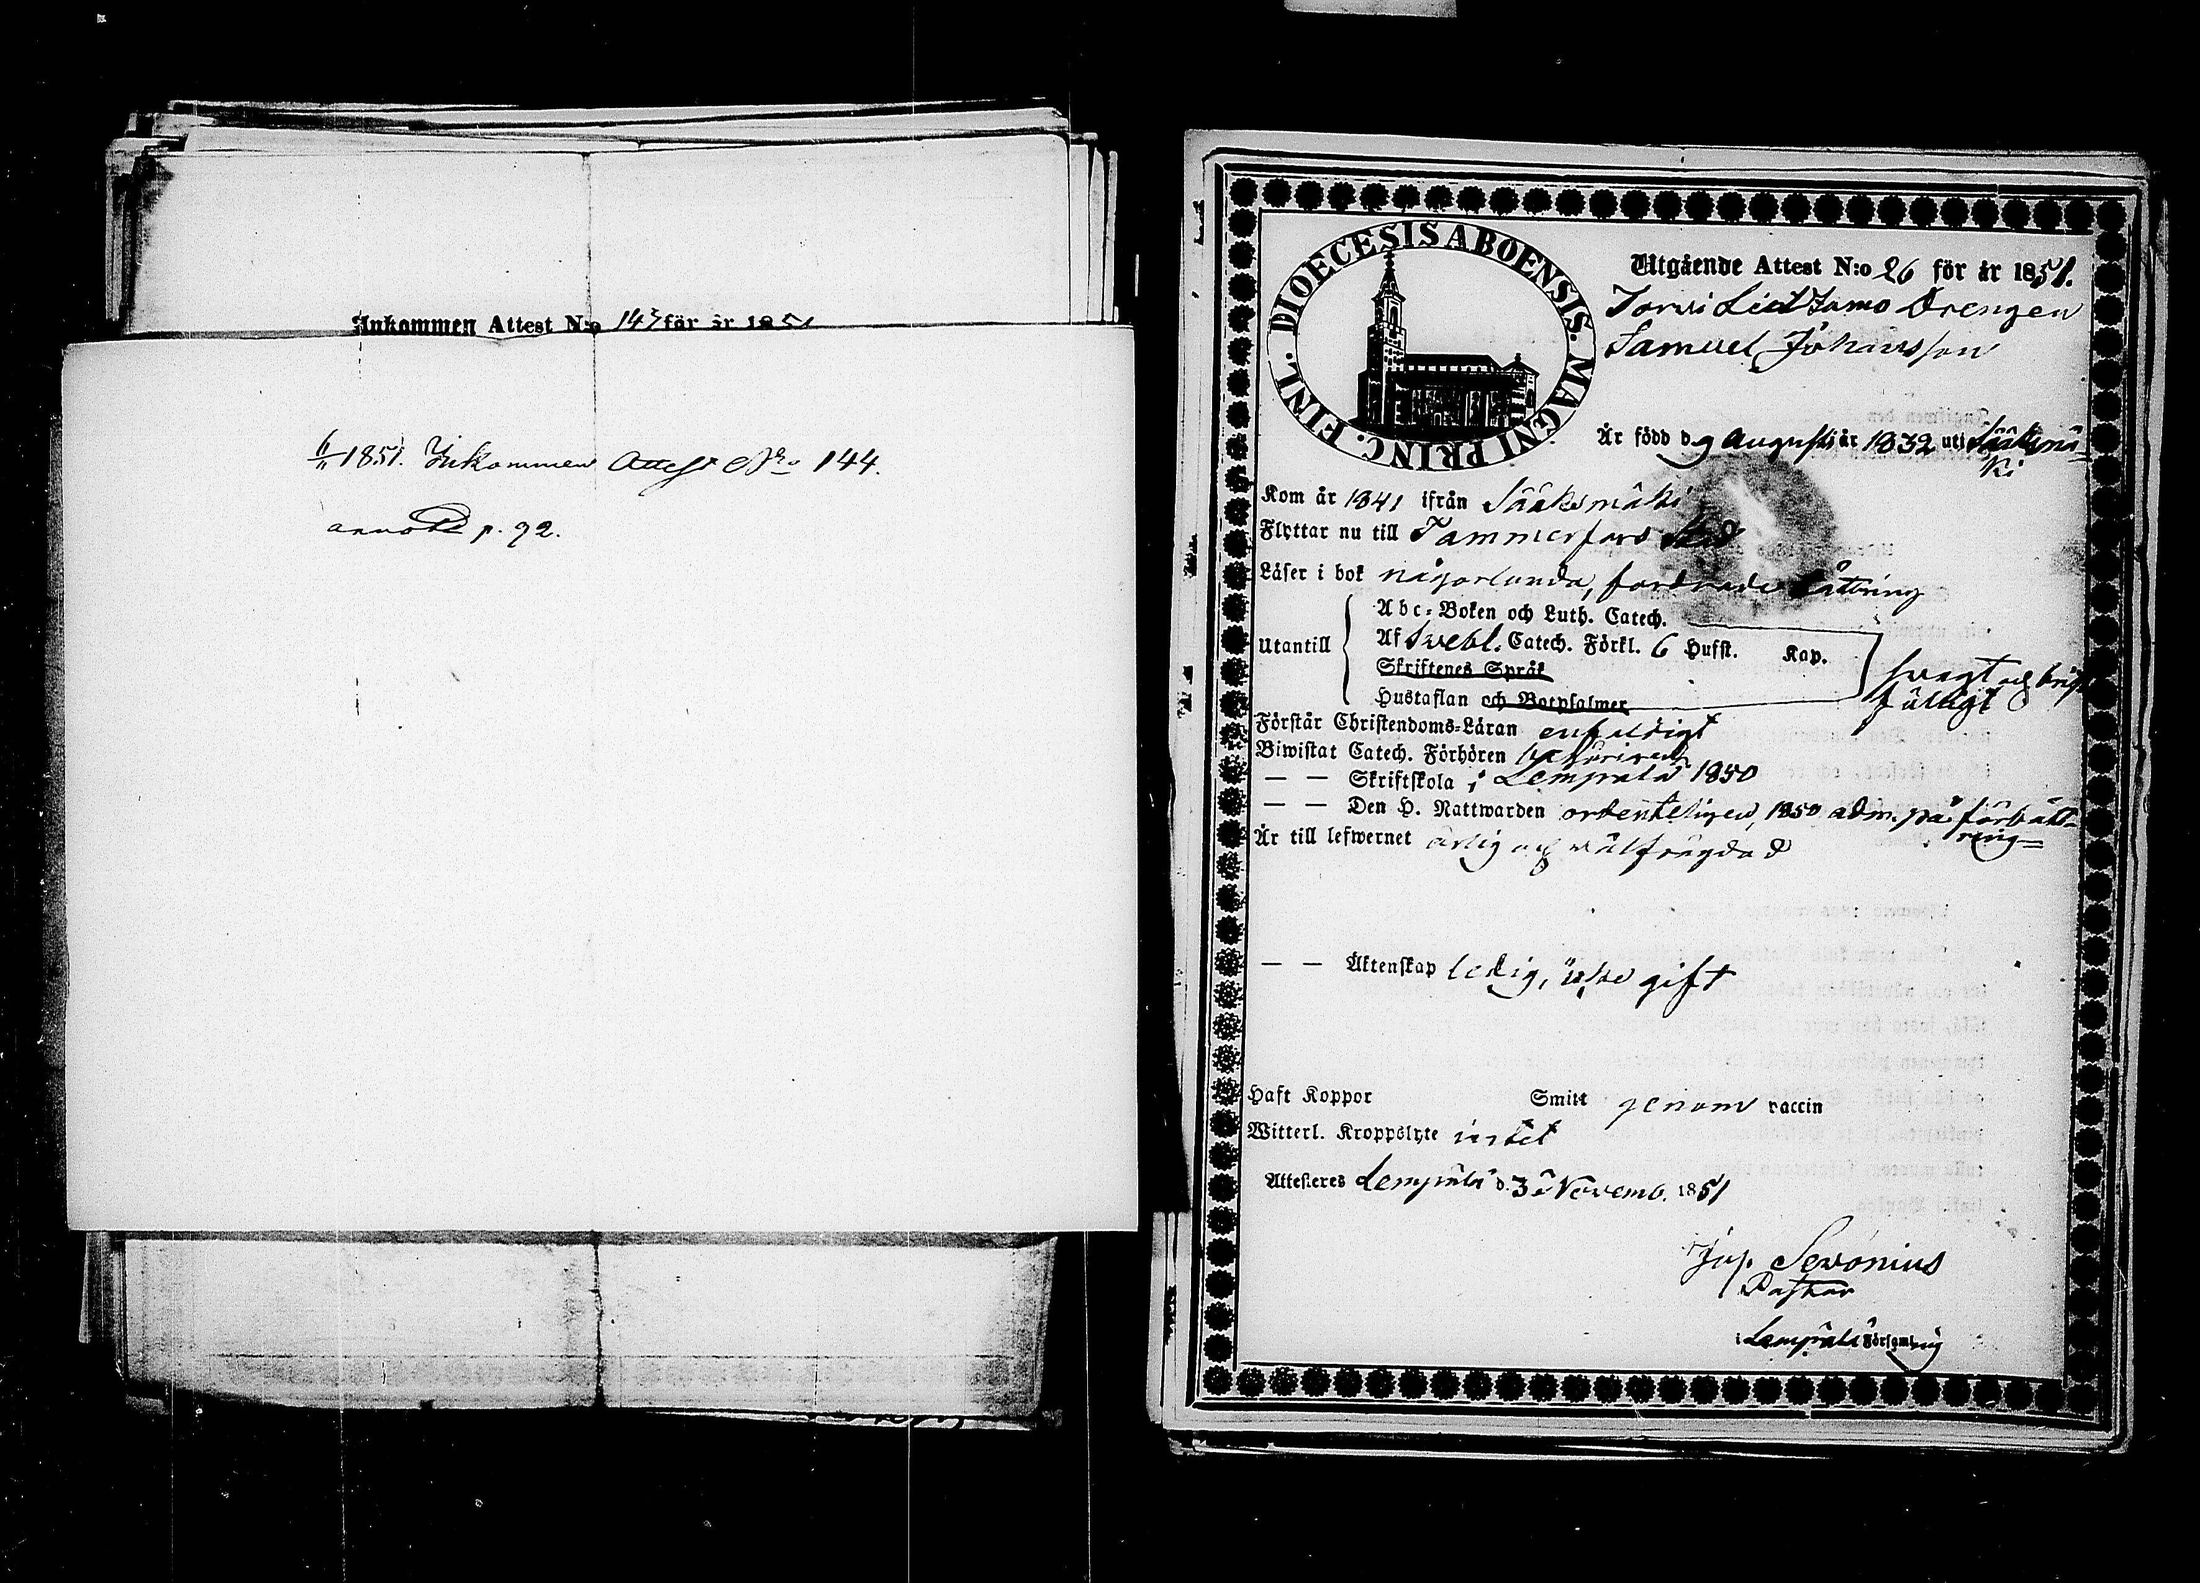 Inkommen Attest N:o 143 för år 1851
6/11 1851. Inkommen Attest No 144.
annoterd p. 92.
DIOECESIS ABOENSIS. MAGNI PRINC. FINL.
Utgående Attest N:o 26 för år 1851.
Drengen
Samuel Johansson
Är född d. 9 Augusti år 1832 uti Sääksmä-
ki
Kom år 1841 ifrån Sääksmäki
Flyttar nu till Tammerfors Stad
Läser i bok någorlunda, fordrade bättring
Utantill
Abc-Boken och Luth. Catech.
Af Svebl. Catech. Förkl. 6 Hufst. Kap.
Skriftenes Språk
Hustaflan och Botpsalmer
svagt och brist
fälligt
Förstår Christendoms-Läran enfaldigt
Biwistat Catech. Förhören behörigen
— — Skriftskola i Lempälä 1850
— — Den H. Nattwarden ordenteligen, 1850 adm. på förbätt-
ring
Är till lefwernet ärlig och välfrägdad
— — Äktenskap ledig, icke gift
Haft Koppor Smitt genom vaccin
Witterl. Kroppslyte intet
Attesteres Lempälä d. 3 Novemb. 1851
Jos. Sevonius
Pastor
i Lempälä Församling